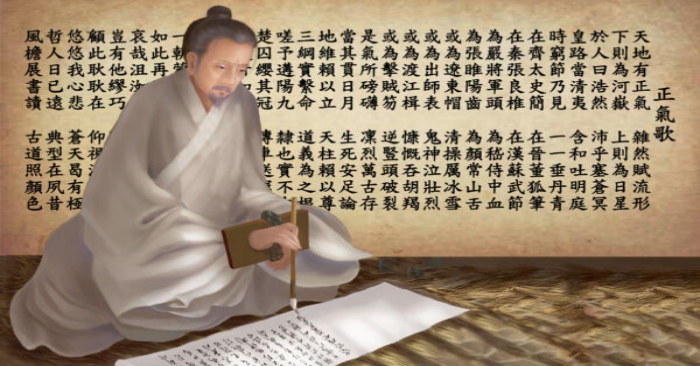 正氣歌
天地有正氣
雜然賦流形
下則為河嶽
上則為日星
於人曰浩然
沛乎塞蒼冥
皇路當清夷
含和吐明庭
時窮節乃見
一一垂丹青
在齊太史簡
在晉董狐筆
在秦張良椎
在漢蘇武節
為嚴將軍頭
為嵇侍中血
為張睢陽齒
為顏常山舌
或為遼東帽
清操厲冰雪
或為出師表
鬼神泣壯烈
或為渡江楫
慷慨吞胡羯
或為擊賊笏
逆豎頭破裂
是氣所磅礡
凜烈萬古存
當其貫日月
生死安足論
地維賴以立
天柱賴以尊
三綱實繫命
道義為之根
嗟予遘陽九
隸也實不
楚囚纓其冠
傳車送
一
如此再
哀哉沮洳
豈有他繆巧
顧此耿耿在
仰視
悠悠我心悲
蒼天曷有極
哲人日已遠
典型在夙昔
風簷展書讀
古道照顏色